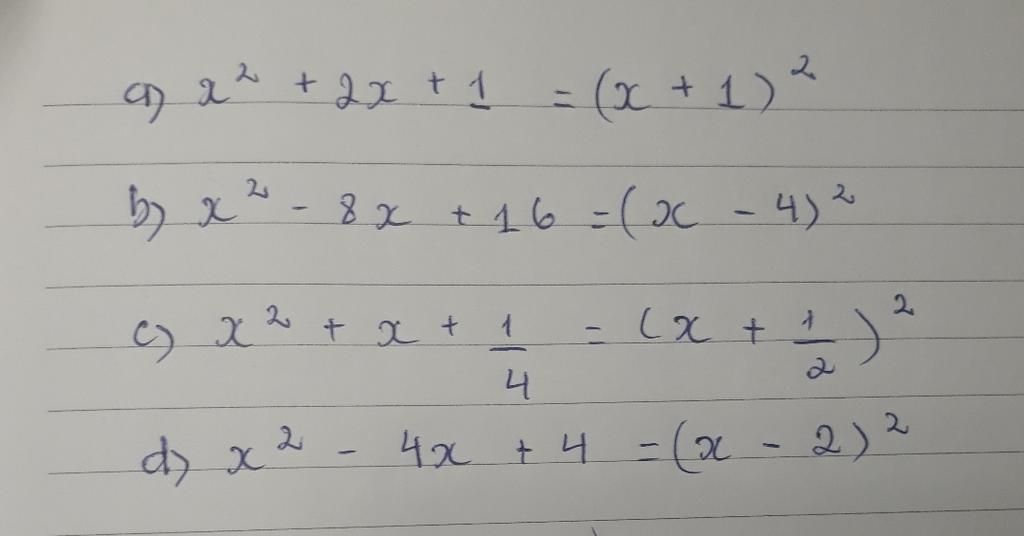 a) x² + 2x + 1 = (x + 1)²
b) x² - 8x + 16 = (x - 4)²
c) x² + x + 1/4 = (x + 1/2)²
d) x² - 4x + 4 = (x - 2)²